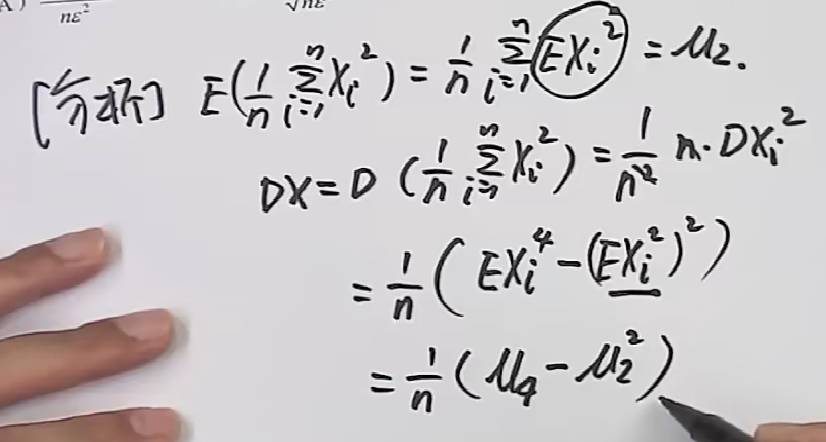 A) nε² √nε
[分析] E(1/n ∑_{i=1}^{n} X_i²) = 1/n ∑_{i=1}^{n} EX_i² = μ₂.
DX = D(1/n ∑_{i=1}^{n} X_i²) = 1/n² n·DX_i²
= 1/n (EX_i⁴ − (EX_i²)²)
= 1/n (μ₄ − μ₂²)